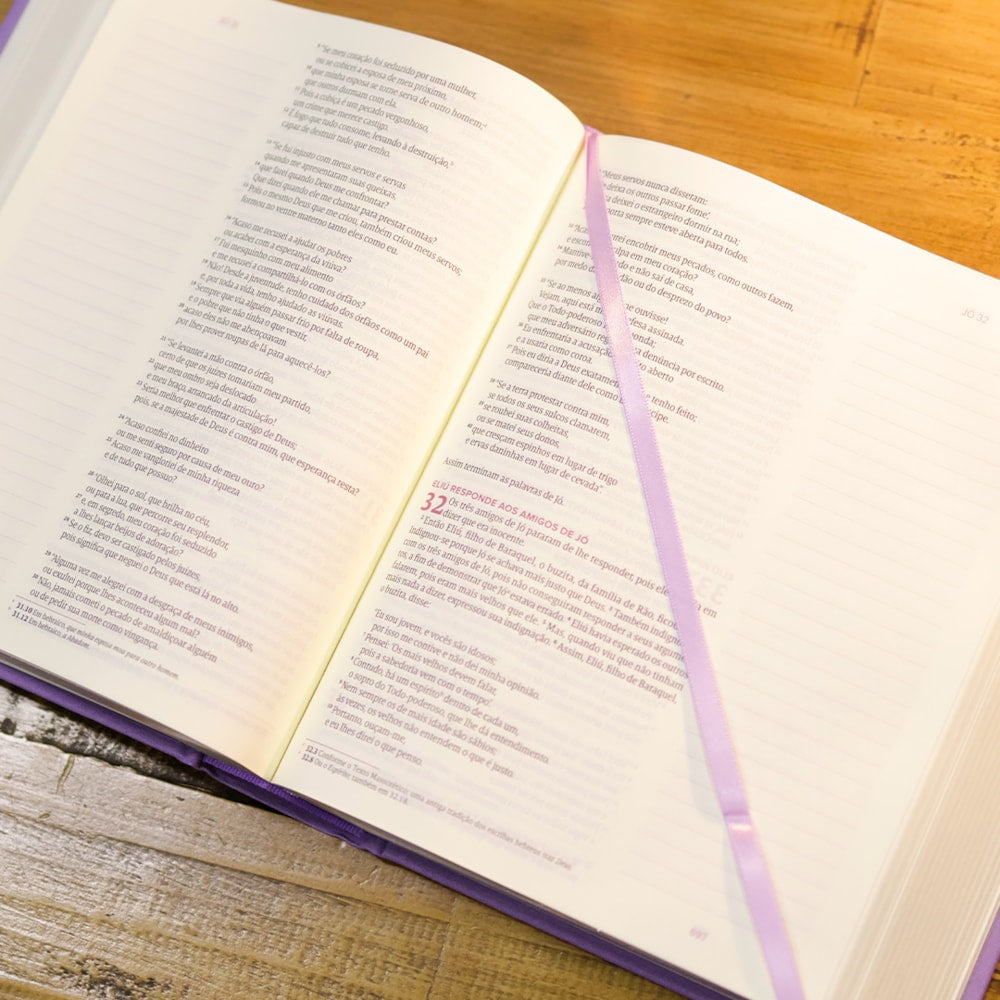 ⁹ "Se meu coração foi seduzido por uma mulher,
ou se cobicei a esposa de meu próximo,
¹⁰ que minha esposa se torne serva de outro homem;
que outros durmam com ela.
¹¹ Pois a cobiça é um pecado vergonhoso,
um crime que merece castigo.
¹² É fogo que tudo consome, levando à destruição,
capaz de destruir tudo que tenho.
¹³ "Se fui injusto com meus servos e servas
quando me apresentaram suas queixas,
¹⁴ que farei quando Deus me confrontar?
Que direi quando ele me chamar para prestar contas?
¹⁵ Pois o mesmo Deus que me criou, também criou meus servos;
formou no ventre materno tanto eles como eu.
¹⁶ "Acaso me recusei a ajudar os pobres
ou acabei com a esperança da viúva?
¹⁷ Fui mesquinho com meu alimento
e me recusei a compartilhá-lo com os órfãos?
¹⁸ Não! Desde a juventude, tenho cuidado dos órfãos como um pai
e, por toda a vida, tenho ajudado as viúvas.
¹⁹ Sempre que via alguém passar frio por falta de roupa,
e o pobre que não tinha o que vestir,
²⁰ acaso eles não me abençoavam
por lhes prover roupas de lã para aquecê-los?
²¹ "Se levantei a mão contra o órfão,
certo de que os juízes tomariam meu partido,
²² que meu ombro seja deslocado
e meu braço, arrancado da articulação!
²³ Seria melhor que enfrentar o castigo de Deus;
pois, se a majestade de Deus é contra mim, que esperança resta?
²⁴ "Acaso confiei no dinheiro
ou me senti seguro por causa de meu ouro?
²⁵ Acaso me vangloriei de minha riqueza
e de tudo que possuo?
²⁶ "Olhei para o sol, que brilha no céu,
ou para a lua, que percorre seu resplendor,
²⁷ e, em segredo, meu coração foi seduzido
a lhes lançar beijos de adoração?
²⁸ Se o fiz, devo ser castigado pelos juízes,
pois significa que neguei o Deus que está lá no alto.
²⁹ "Alguma vez me alegrei com a desgraça de meus inimigos,
ou exultei porque lhes aconteceu algum mal?
³⁰ Não, jamais cometi o pecado de amaldiçoar alguém
ou de pedir sua morte como vingança.
31.10 Em hebraico, que minha esposa moa para outro homem.
31.12 Em hebraico, a Abadom.
"Meus servos nunca disseram:
deixa os outros passar fome'.
deixei o estrangeiro dormir na rua;
porta sempre esteve aberta para todos.
encobrir meus pecados, como outros fazem,
culpa em meu coração?
e não saí de casa,
por medo ou do desprezo do povo?
³⁵ "Se ao menos ouvisse!
Vejam, aqui está defesa assinada.
Que o Todo-poderoso
que meu adversário denúncia por escrito.
³⁶ Eu enfrentaria a acusação aberto
e a usaria como coroa.
³⁷ Pois eu diria a Deus exatamente tenho feito;
compareceria diante dele como
³⁸ "Se a terra protestar contra mim,
se todos os seus sulcos clamarem,
³⁹ se roubei suas colheitas,
ou se matei seus donos,
⁴⁰ que cresçam espinhos em lugar de trigo
e ervas daninhas em lugar de cevada".
Assim terminam as palavras de Jó.
ELIÚ RESPONDE AOS AMIGOS DE JÓ
32 Os três amigos de Jó pararam de lhe responder, pois em
dizer que era inocente.
² Então Eliú, filho de Baraquel, o buzita, da família de Rão, ficou
Indignou-se porque Jó se achava mais justo que Deus. ³ Também indigno
com os três amigos de Jó, pois não conseguiram responder a seus argume
tos, a fim de demonstrar que Jó estava errado. ⁴ Eliú havia esperado os outros
falarem, pois eram mais velhos que ele. ⁵ Mas, quando viu que não tinham
mais nada a dizer, expressou sua indignação. ⁶ Assim, Eliú, filho de Baraquel,
o buzita, disse:
"Eu sou jovem, e vocês são idosos;
por isso me contive e não dei minha opinião.
⁷ Pensei: 'Os mais velhos devem falar,
pois a sabedoria vem com o tempo'.
⁸ Contudo, há um espírito dentro de cada um,
o sopro do Todo-poderoso, que lhe dá entendimento.
⁹ Nem sempre os de mais idade são sábios;
às vezes, os velhos não entendem o que é justo.
¹⁰ Portanto, ouçam-me,
e eu lhes direi o que penso.
32.3 Conforme o Texto Massorético; uma antiga tradição dos escribas hebreus traz Deus.
32.8 Ou o Espírito; também em 32.18.
JÓ 32
697